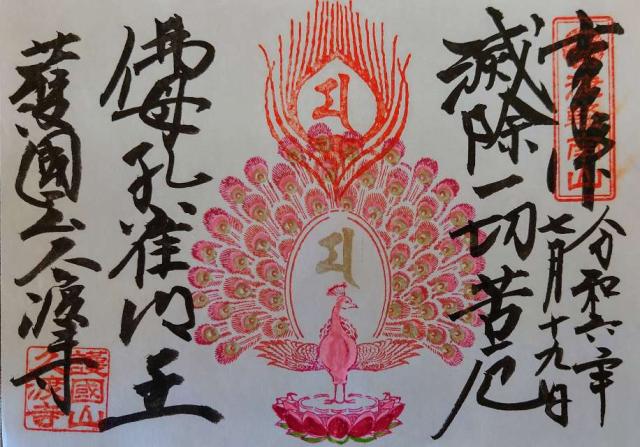 令和六年
七月十九日
滅除一切苦厄
佛母孔雀明王
護國山久渡寺
護國山
久渡寺